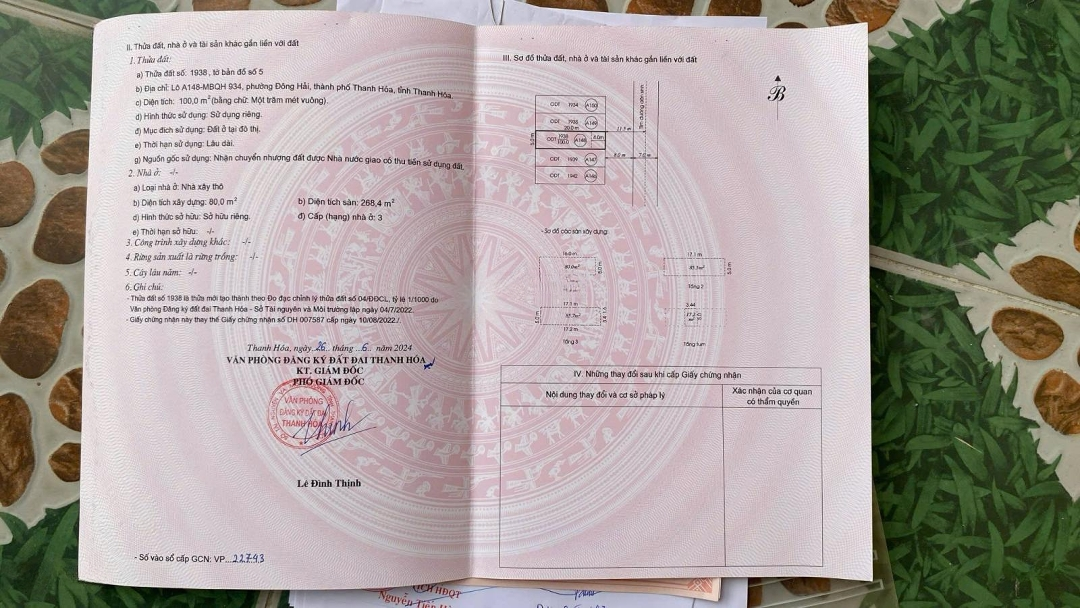 II. Thửa đất, nhà ở và tài sản khác gắn liền với đất
1. Thửa đất:
a) Thửa đất số: 1938 , tờ bản đồ số 5
b) Địa chỉ: Lô A148-MBQH 934, phường Đông Hải, thành phố Thanh Hóa, tỉnh Thanh Hóa.
c) Diện tích: 100,0 m² (bằng chữ: Một trăm mét vuông).
d) Hình thức sử dụng: Sử dụng riêng.
đ) Mục đích sử dụng: Đất ở tại đô thị.
e) Thời hạn sử dụng: Lâu dài.
g) Nguồn gốc sử dụng: Nhận chuyển nhượng đất được Nhà nước giao có thu tiền sử dụng đất.
2. Nhà ở: -/-
a) Loại nhà ở: Nhà xây thô
b) Diện tích xây dựng: 80,0 m² b) Diện tích sàn: 268,4 m²
d) Hình thức sở hữu: Sở hữu riêng. đ) Cấp (hạng) nhà ở: 3
e) Thời hạn sở hữu: -/-
3. Công trình xây dựng khác: -/-
4. Rừng sản xuất là rừng trồng: -/-
5. Cây lâu năm: -/-
6. Ghi chú:
- Thửa đất số 1938 là thửa mới tạo thành theo Đo đạc chỉnh lý thửa đất số 04/ĐĐCL, tỷ lệ 1/1000 do
Văn phòng Đăng ký đất đai Thanh Hóa - Sở Tài nguyên và Môi trường lập ngày 04/7/2022.
- Giấy chứng nhận này thay thế Giấy chứng nhận số DH 007587 cấp ngày 10/08/2022./.
Thanh Hóa, ngày 26.. tháng ..6.. năm 2024
VĂN PHÒNG ĐĂNG KÝ ĐẤT ĐAI THANH HÓA
KT. GIÁM ĐỐC
PHÓ GIÁM ĐỐC
VĂN PHÒNG
ĐĂNG KÝ ĐẤT ĐAI
THANH HÓA
Lê Đình Thịnh
- Số vào sổ cấp GCN: VP...22743
III. Sơ đồ thửa đất, nhà ở và tài sản khác gắn liền với đất
B
ODT 1934 A150
ODT 1935 A149
20.0 m
5.0 m ODT 1938 100.0 A148 5.0m
ODT 1939 A147
ODT 1942 A146
11.5 m
8.0 m 7.0 m
- Sơ đồ các sàn xây dựng:
16.0 m
80.0m²
5.0 m
17.1 m
83.3m²
5.0 m
Tầng 2
17.2 m
5.0 m
17.2 m
Tầng 3
3.44
Tầng tum
IV. Những thay đổi sau khi cấp Giấy chứng nhận
Nội dung thay đổi và cơ sở pháp lý
Xác nhận của cơ quan
có thẩm quyền
TỊCH HĐQT
Nguyễn Tiến